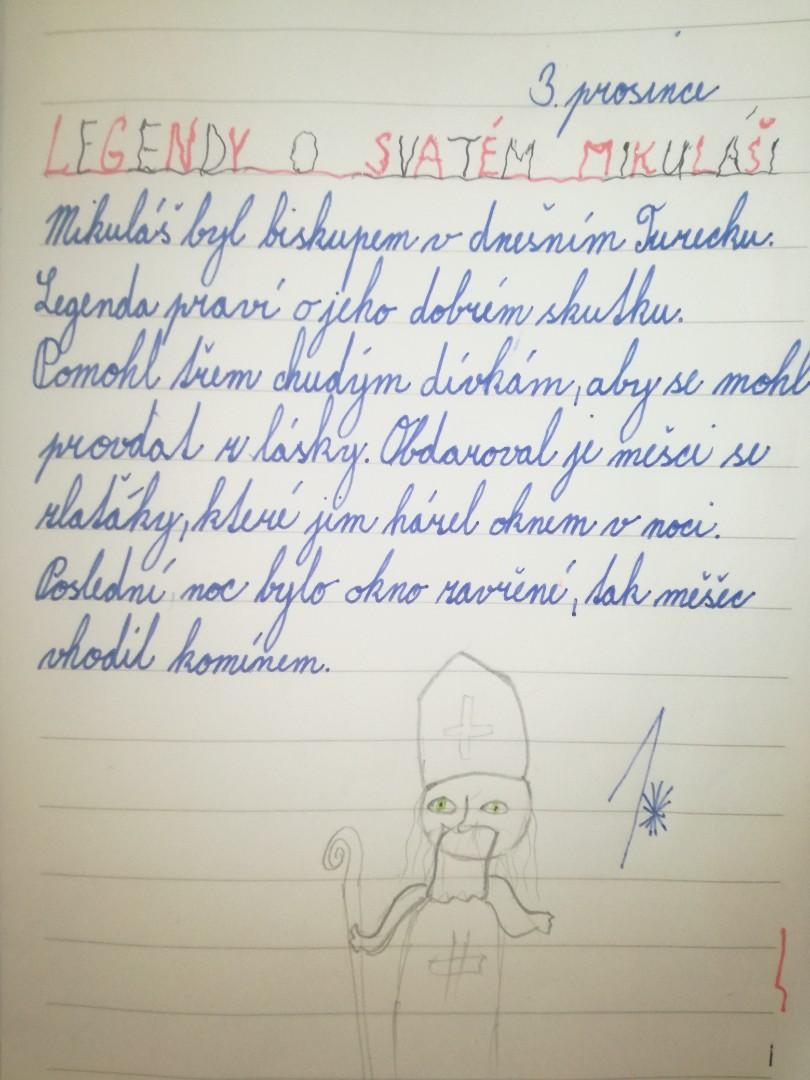 3. prosince
LEGENDY O SVATÉM MIKULÁŠI
Mikuláš byl biskupem v dnešním Turecku.
Legenda praví o jeho dobrém skutku.
Pomohl třem chudým dívkám, aby se mohl
provdat z lásky. Obdaroval je měšci se
zlaťáky, které jim házel oknem v noci.
Poslední noc bylo okno zavřené, tak měšec
vhodil komínem.
1*